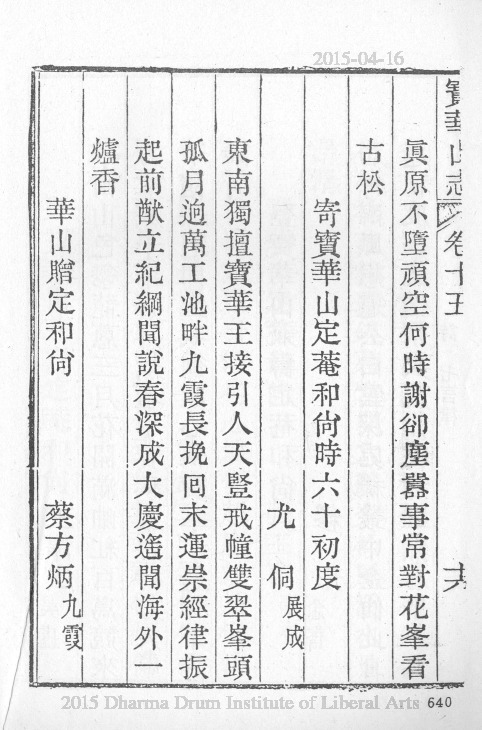 2015-04-16
寶華山志 卷十五 十六
眞原不墮頑空何時謝卻塵囂事常對花峯看
古松
寄寶華山定菴和尙時六十初度
尤 侗 展成
東南獨擅寶華王接引人天豎戒幢雙翠峯頭
孤月逈萬工池畔九霞長挽囘末運崇經律振
起前猷立紀綱聞說春深成大慶遙聞海外一
爐香
華山贈定和尙 蔡方炳 九霞
2015 Dharma Drum Institute of Liberal Arts 640